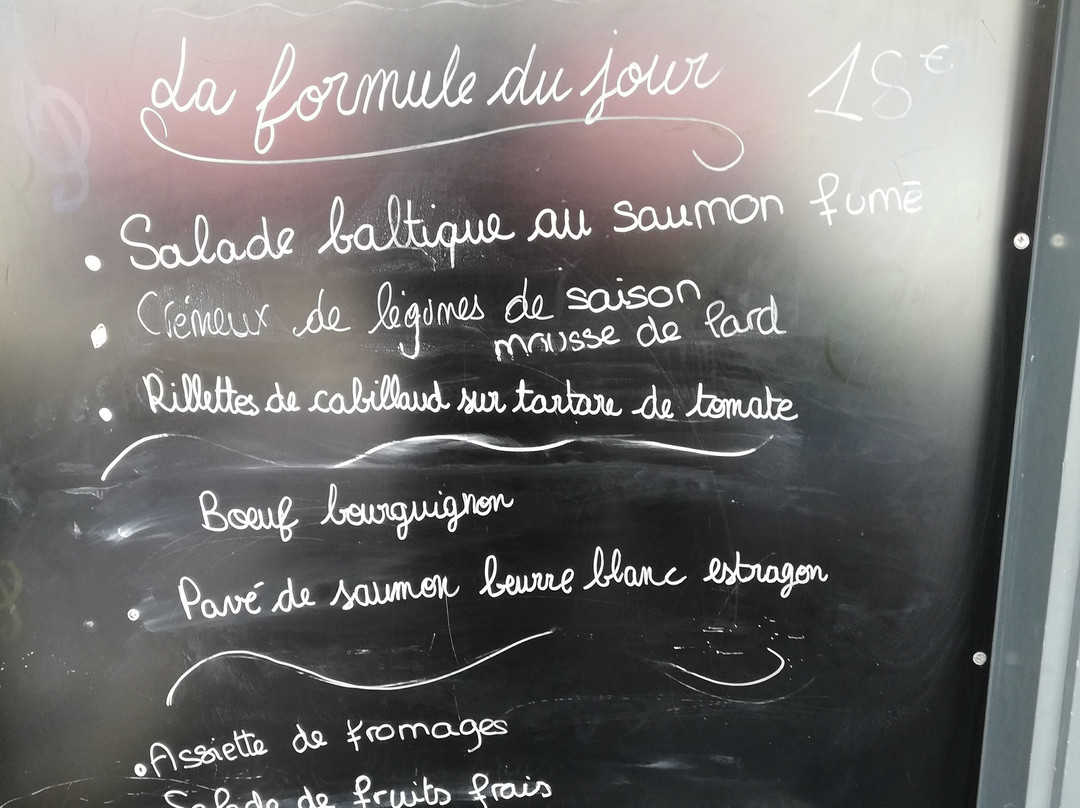 La formule du jour 18€
• Salade baltique au saumon fumé
• Crémeux de légumes de saison
mousse de lard
• Rillettes de cabillaud sur tartare de tomate
Bœuf bourguignon
• Pavé de saumon beurre blanc estragon
• Assiette de fromages
Salade de fruits frais